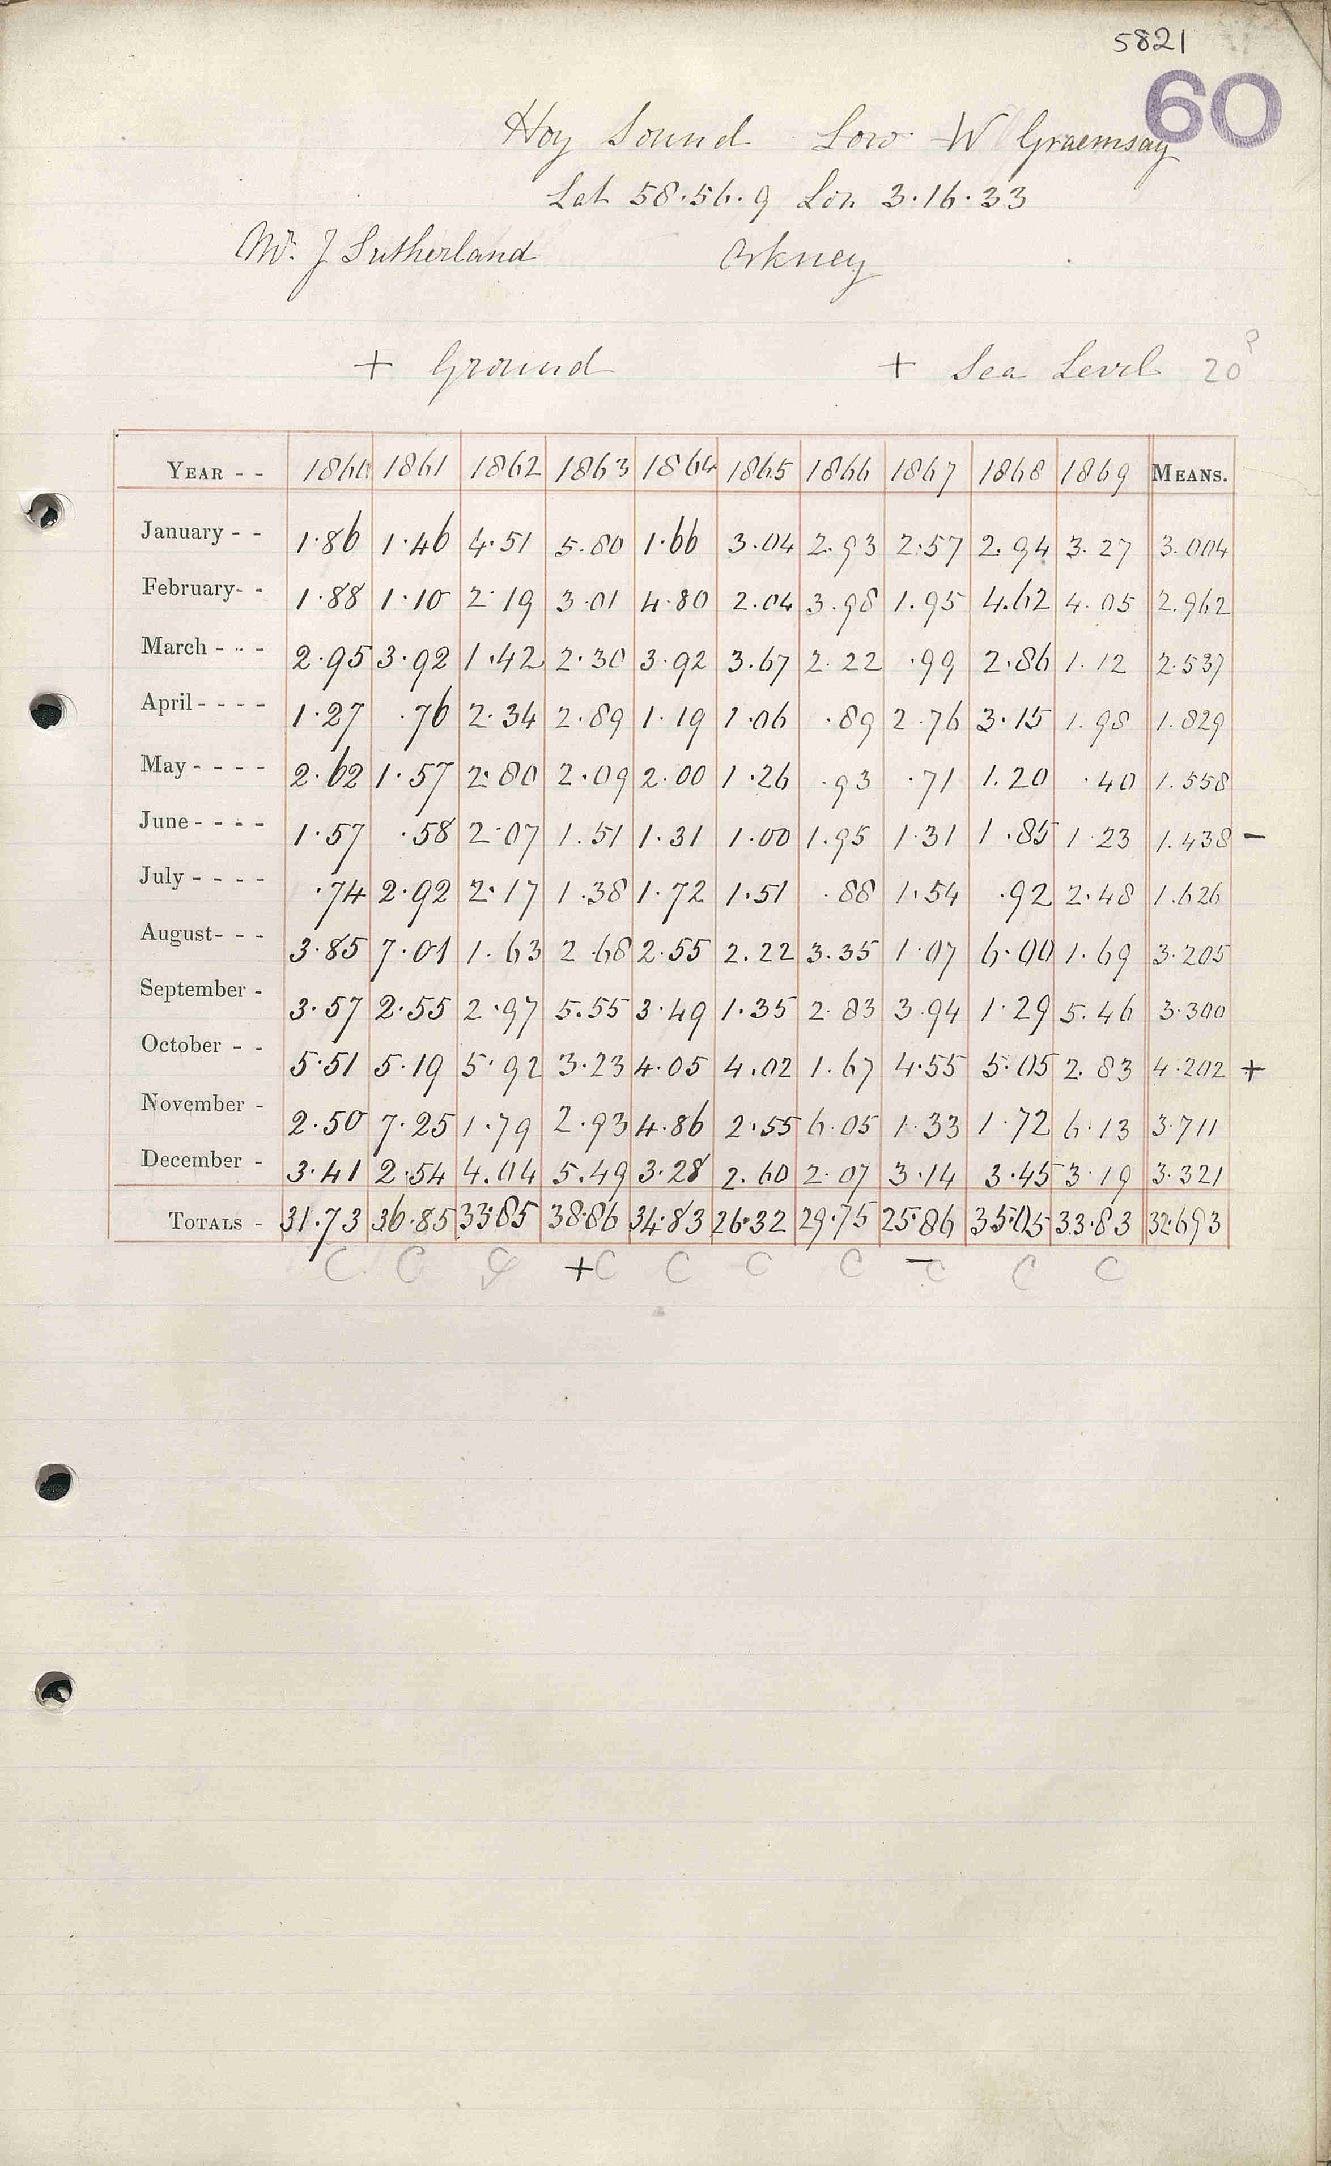 5821
60
Hoy Sound Low W Graemsay
Lat 58.56.9 Lon 3.16.33
Mr. J Sutherland Orkney
+ Ground + Sea Level 20?
YEAR - - 1860 1861 1862 1863 1864 1865 1866 1867 1868 1869 MEANS.
January - - 1.86 1.46 4.51 5.80 1.66 3.04 2.93 2.57 2.94 3.27 3.004
February- - 1.88 1.10 2.19 3.01 4.80 2.04 3.98 1.95 4.62 4.05 2.962
March - - - 2.95 3.92 1.42 2.30 3.92 3.67 2.22 .99 2.86 1.12 2.537
April - - - - 1.27 .76 2.34 2.89 1.19 1.06 .89 2.76 3.15 1.98 1.829
May - - - - 2.62 1.57 2.80 2.09 2.00 1.26 .93 .71 1.20 .40 1.558
June - - - - 1.57 .58 2.07 1.51 1.31 1.00 1.95 1.31 1.85 1.23 1.438 -
July - - - - .74 2.92 2.17 1.38 1.72 1.51 .88 1.54 .92 2.48 1.626
August- - - 3.85 7.01 1.63 2.68 2.55 2.22 3.35 1.07 6.00 1.69 3.205
September - 3.57 2.55 2.97 5.55 3.49 1.35 2.83 3.94 1.29 5.46 3.300
October - - 5.51 5.19 5.92 3.23 4.05 4.02 1.67 4.55 5.05 2.83 4.202 +
November - 2.50 7.25 1.79 2.93 4.86 2.55 6.05 1.33 1.72 6.13 3.711
December - 3.41 2.54 4.04 5.49 3.28 2.60 2.07 3.14 3.45 3.19 3.321
TOTALS - 31.73 36.85 33.85 38.86 34.83 26.32 29.75 25.86 35.05 33.83 32.693
C C C +C C C C -C C C